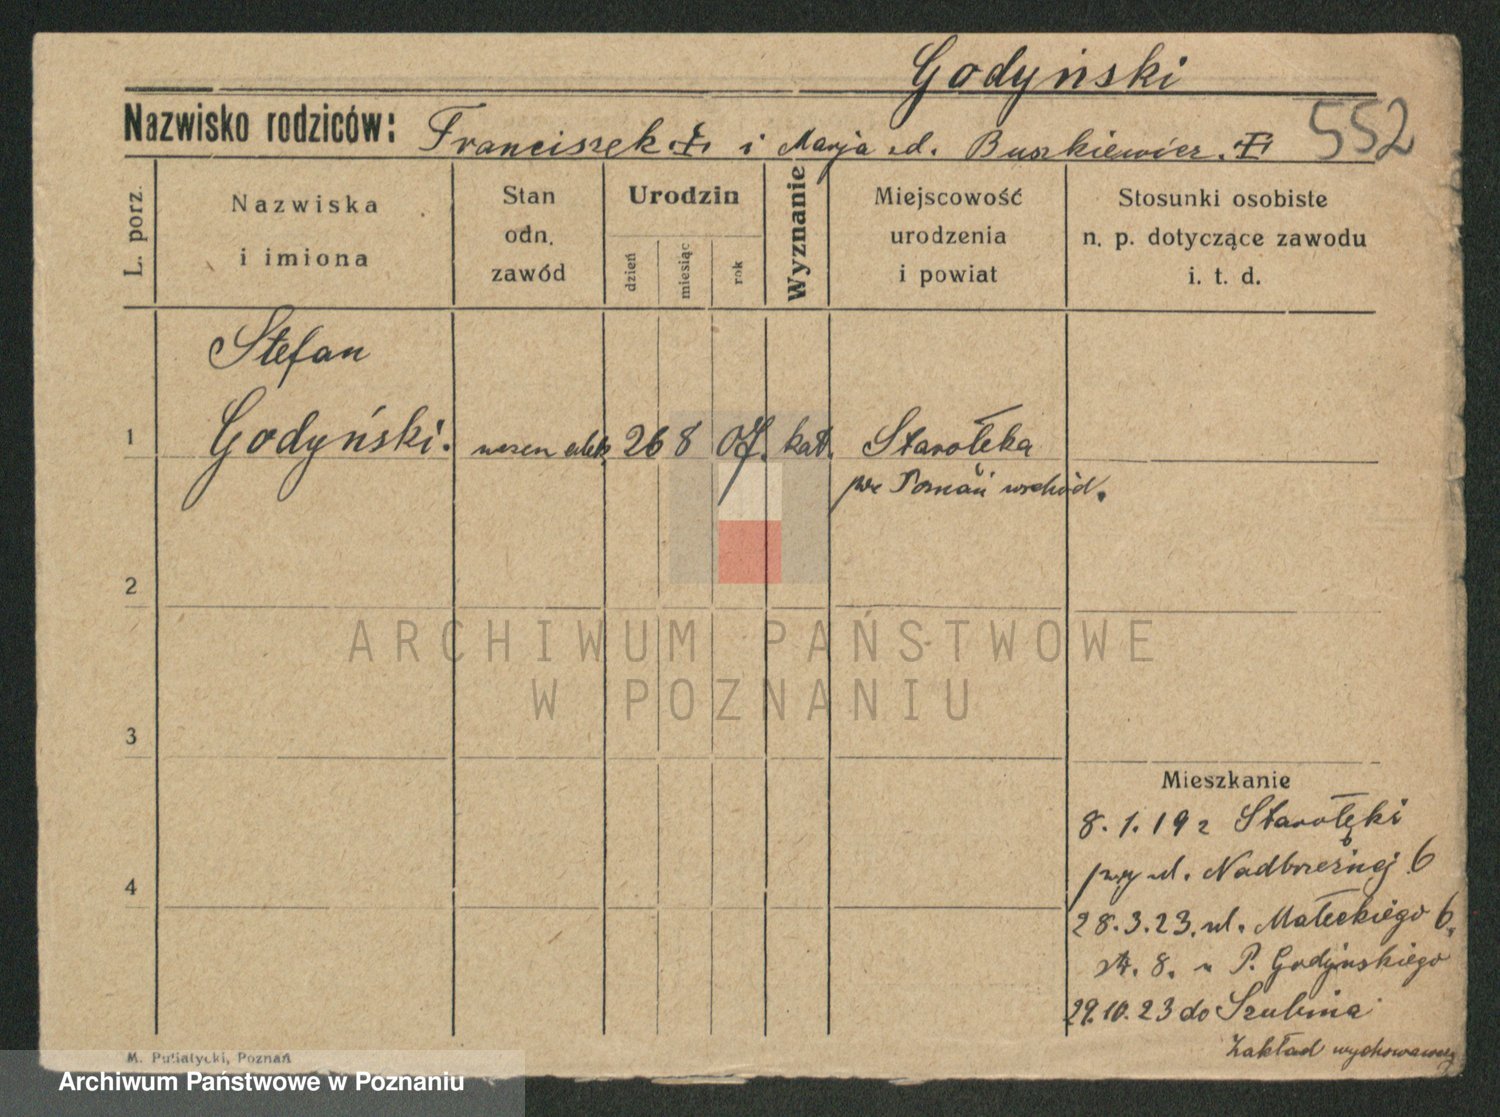 Godyński
Nazwisko rodziców: Franciszek i Marja Buszkiewicz. 552
L. porz.
Nazwiska
i imiona
Stan
odn.
zawód
Urodzin
dzień
miesiąc
rok
Wyznanie
Miejscowość
urodzenia
i powiat
Stosunki osobiste
n. p. dotyczące zawodu
i. t. d.
Stefan
1 Godyński. uczeń 26 8 07. kat. Starołeka
Poznań wschód.
2
3
4
Mieszkanie
8.1.19 z Starołęki
przy ul. Nadbrzeżnej 6
28.3.23. ul. Małeckiego 6,
8. u P. Godyńskiego
29.10.23 do Szubina
Zakład wychowawczy
M. Putiatycki, Poznań
ARCHIWUM PAŃSTWOWE
W POZNANIU
Archiwum Państwowe w Poznaniu